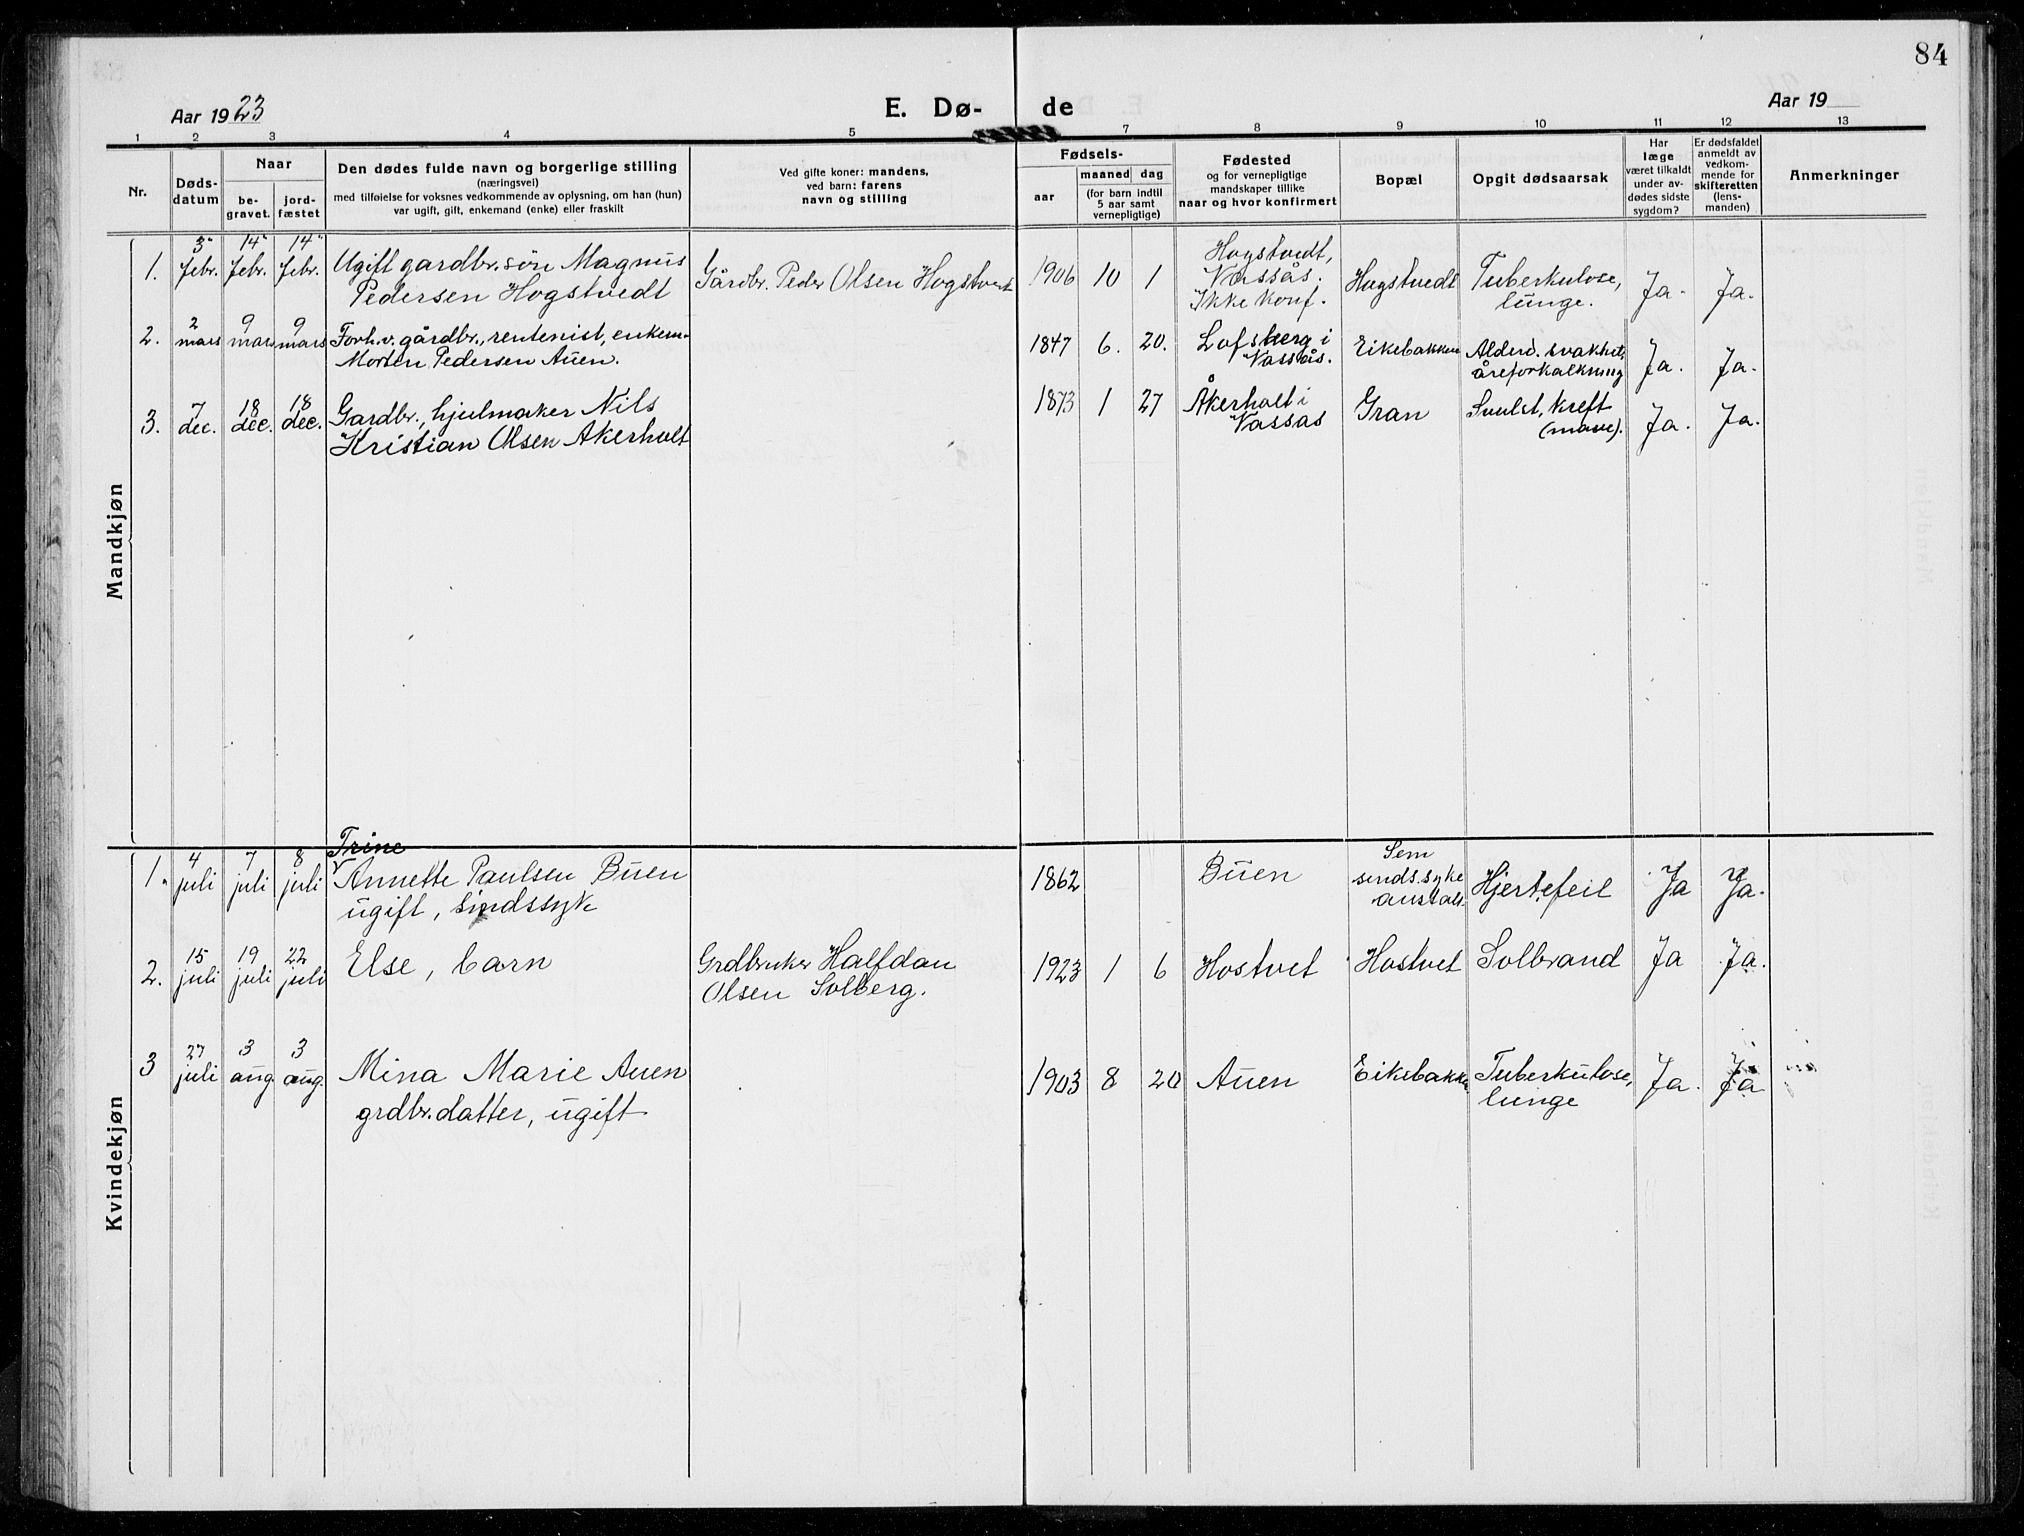 84
Aar 1923
E. Dø-
de
Aar 19
1 2 3 4 5 7 8 9 10 11 12 13
Nr.
Døds-
datum
Naar
be-
gravet.
jord-
fæstet
Den dødes fulde navn og borgerlige stilling
(næringsvei)
med tilføielse for voksnes vedkommende av oplysning, om han (hun)
var ugift, gift, enkemand (enke) eller fraskilt
Ved gifte koner: mandens,
ved barn: farens
navn og stilling
Fødsels-
aar
maaned dag
(for barn indtil
5 aar samt
vernepligtige)
Fødested
og for vernepligtige
mandskaper tillike
naar og hvor konfirmert
Bopæl
Opgit dødsaarsak
Har
læge
været tilkaldt
under av-
dødes sidste
sygdom?
Er dødsfaldet
anmeldt av
vedkom-
mende for
skifteretten
(lens-
manden)
Anmerkninger
Mandkjøn
1.
3.
febr.
14.
febr.
14.
febr.
Ugift gardbr. søn Magnus
Pedersen Hogstvedt
Gårdbr. Peder Olsen Hogstvedt
1906 10 1
Hogstvedt,
Vassås.
Ikke konf.
Hogstvedt
Tuberkulose,
lunge.
Ja.
Ja.
2.
2
mars
9
mars
9
mars
Forh.v. gårdbr., rentenist, enkem.
Morten Pedersen Auen.
1847 6. 20.
Lofsberg i
Vassås.
Eikebakken
Alderd. svakhet,
åreforkalkning
Ja.
Ja.
3.
7
dec.
18
dec.
18
dec.
Gardbr., hjulmaker Nils
Kristian Olsen Akerholt
1873 1 27
Åkerholt i
Vassas
Gran
Svulst, kreft
(mave).
Ja.
Ja.
Kvindekjøn
1.
4
juli
7
juli
8
juli
Trine
Annette Paulsen Buen
ugift, sindssyk
1862
Buen
Sem
sindssyke
anstalt.
Hjertefeil
Ja
Ja.
2.
15
juli
19
juli
22
juli
Else, barn
Grdbruker Halfdan
Olsen Solberg.
1923 1 6
Hostvet
Hostvet
Solbrand
Ja
Ja.
3
27
juli
3
aug.
3
aug.
Mina Marie Auen
grdbr. datter, ugift
1903 8 20
Auen
Eikebakken
Tuberkulose,
lunge
Ja.
Ja